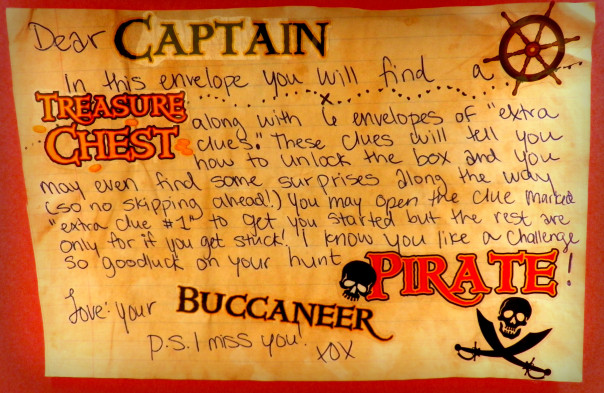 Dear CAPTAIN
In this envelope you will find a
TREASURE CHEST
along with 6 envelopes of "extra
clues." These clues will tell you
how to unlock the box and you
may even find some surprises along the way
(so no skipping ahead!) You may open the clue marked
"extra clue #1" to get you started but the rest are
only for if you get stuck! I know you like a challenge
so goodluck on your hunt PIRATE!
Love: your BUCCANEER
P.S. I miss you!
XOX